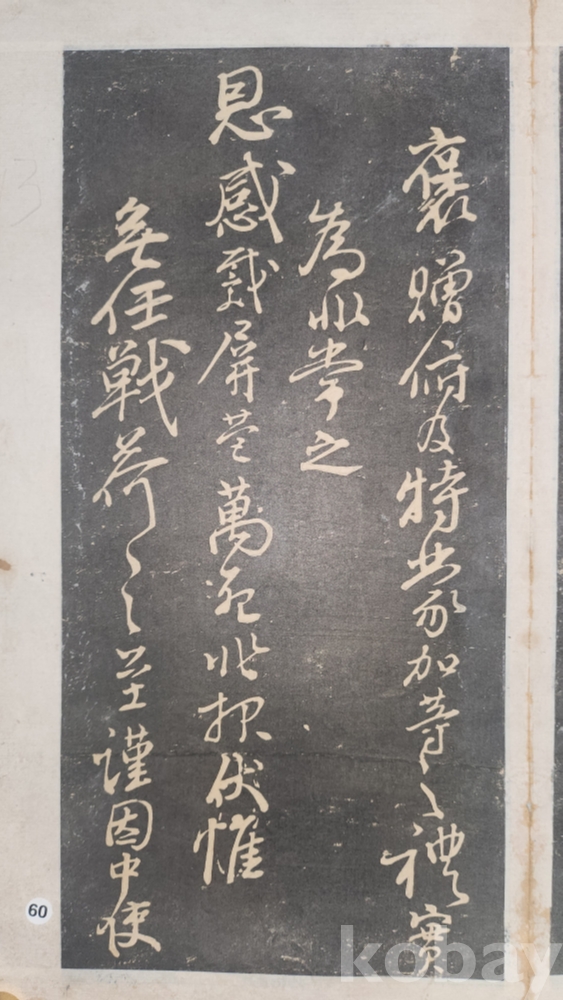 褒贈俯及特蒙加等之禮實
為非常之
恩感戴屏營萬死非報伏惟
無任戰荷之至謹因中使
60
kobay